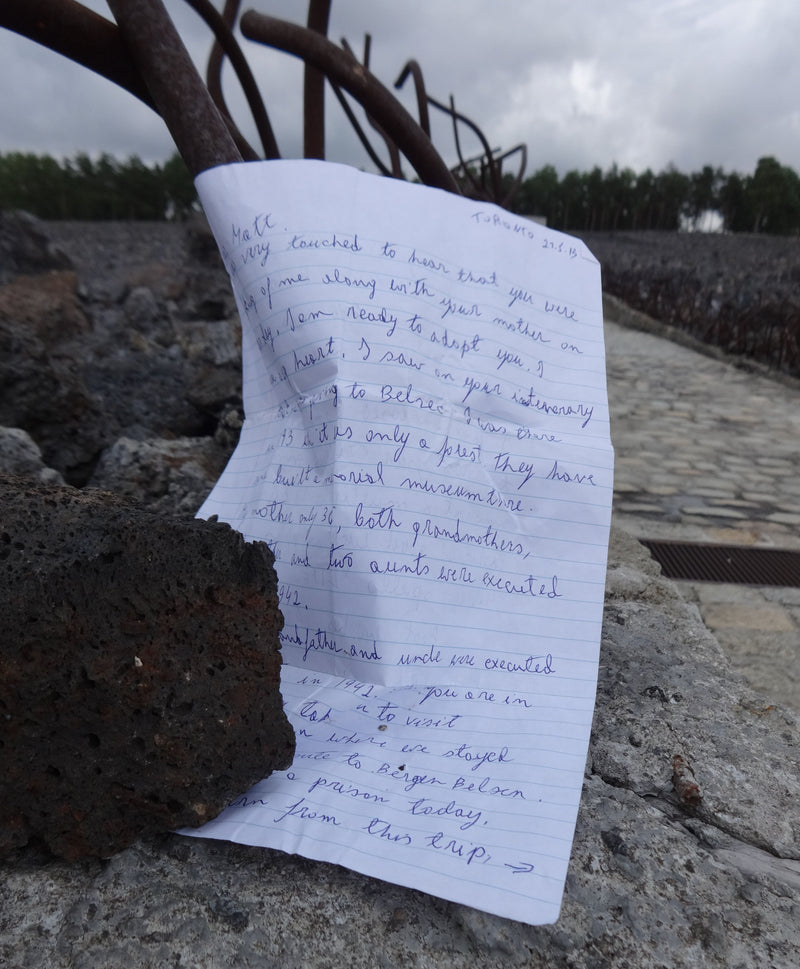 TORONTO 21.5.13
Matt.
very touched to hear that you were
of me along with your mother on
I am ready to adopt you. I
heart. I saw on your itenerary
going to Belzec I was there
it is only a forest they have
built memorial museum there.
mother only 36, both grandmothers,
and two aunts were executed
1942.
grandfather and uncle were executed
in 1942. you are in
to visit
where we stayed
to Bergen Belsen.
a prison today,
from this trip, →